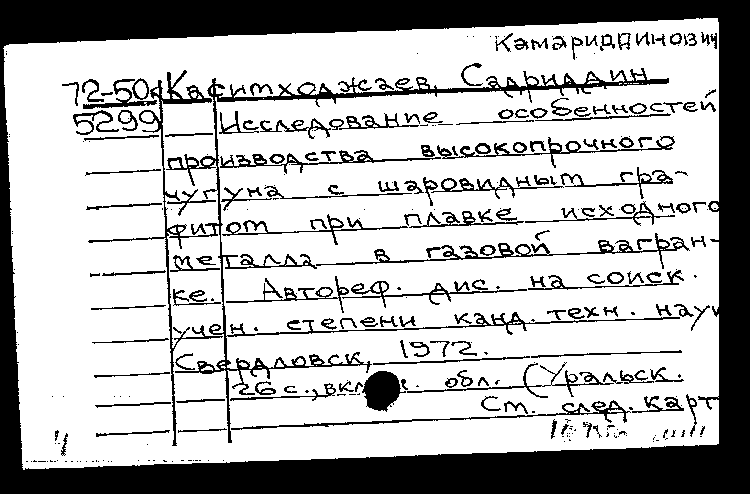 Камариддинович
72-50к Каситходжаев, Садриддин
5299 Исследование особенностей
производства высокопрочного
чугуна с шаровидным гра-
фитом при плавке исходного
металла в газовой вагран-
ке. Автореф. дис. на соиск.
учен. степени канд. техн. наук
Свердловск, 1972.
26 с., вкл. обл. (Уральск.
См. след. карт